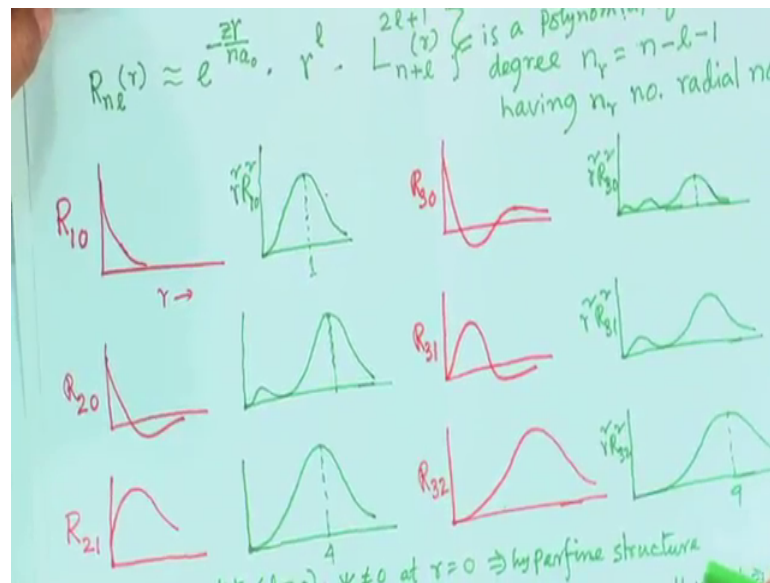 R_{nℓ}(r) ≈ e^{-Zr/na₀} . r^ℓ . L_{n+ℓ}^{2ℓ+1}(r) } = is a
degree n_r = n-ℓ-1
having n_r no. radial
R₁₀
r²R₁₀²
1
r →
R₃₀
r²R₃₀²
R₂₀
R₃₁
r²R₃₁²
R₂₁
4
R₃₂
r²R₃₂²
9
ψ≠0 at r=0 ⇒ hyperfine structure